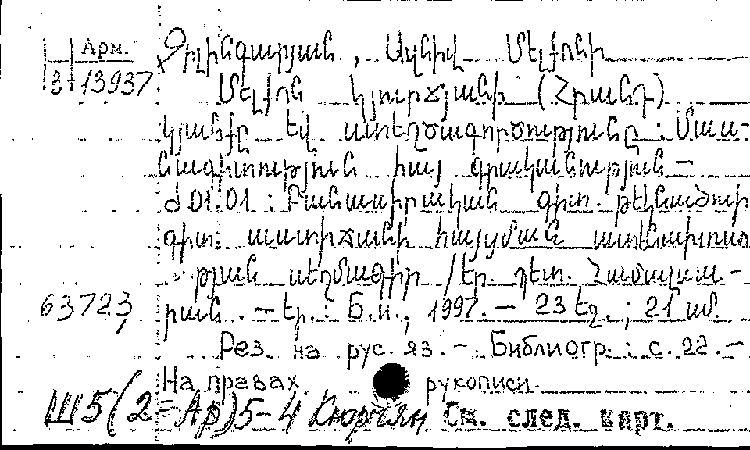 Арм.
3 13937
Չիլինգարյան, Ազնիվ Մելքոնի
Մելքոն Կյուրճյանի (Հրանդ)
կյանքը եվ ստեղծագործությունը: Մաս-
նագիտություն հայ գրականություն –
Ժ 01.01: Բանասիրական գիտ. թեկնածուի
գիտ. աստիճանի հայցման ատենախոսու
թյան սեղմագիր / Եր. պետ. Համալսա-
63723 րան. – Եր.: Б.и., 1997. – 23 էջ.; 21 սմ.
Рез. на рус. яз. – Библиогр.: с. 22. –
На правах рукописи.
Ш5(2=Ар)5-4 Кюрчян См. след. карт.